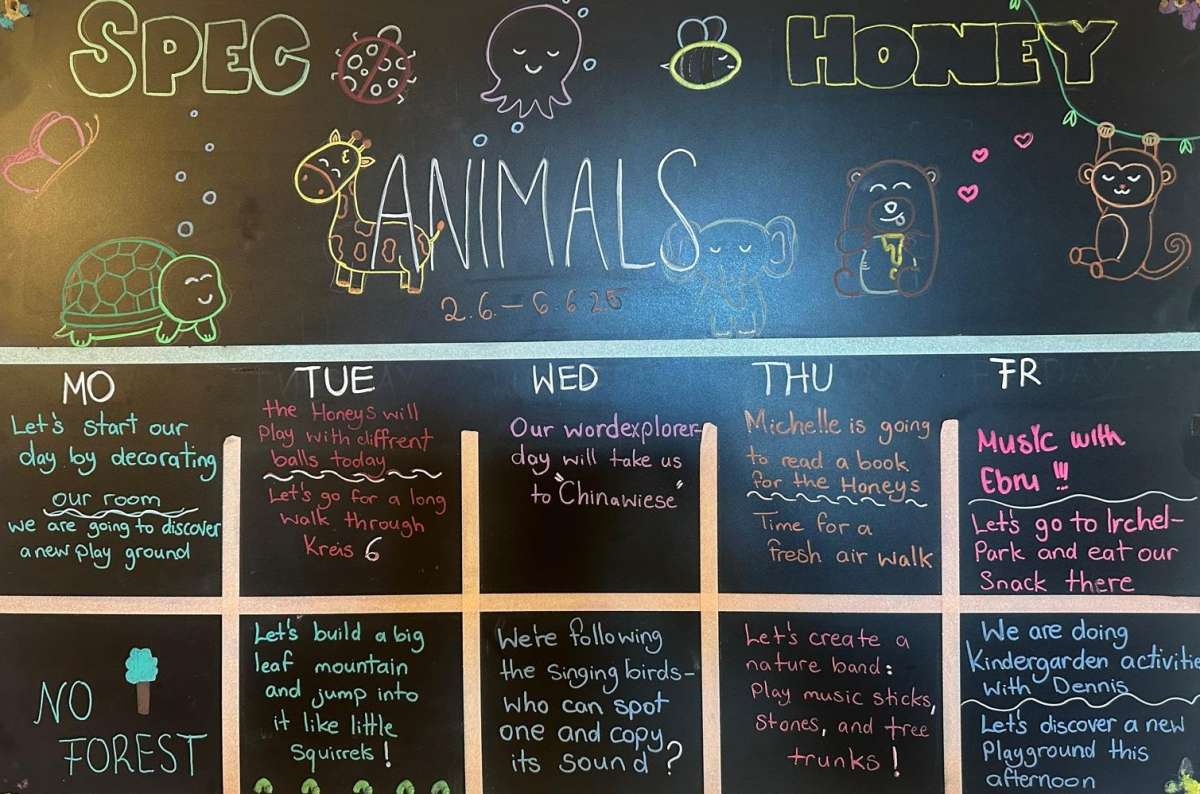 SPEC HONEY
ANIMALS
2.6. – 6.6.25
MO
Let's start our
day by decorating
our room
we are going to discover
a new play ground
TUE
the Honeys will
Play with diffrent
balls today
Let's go for a long
walk through
Kreis 6
WED
Our wordexplorer-
day will take us
to "Chinawiese"
THU
Michelle is going
to read a book
for the Honeys
Time for a
fresh air walk
FR
Music with
Ebru !!!
Let's go to Irchel-
Park and eat our
Snack there
NO
FOREST
Let's build a big
leaf mountain
and jump into
it like little
Squirrels!
We're following
the singing birds-
who can spot
one and copy
its sound?
Let's create a
nature band:
Play music sticks,
stones, and tree
trunks!
We are doing
Kindergarden activitie
with Dennis
Let's discover a new
Playground this
afternoon